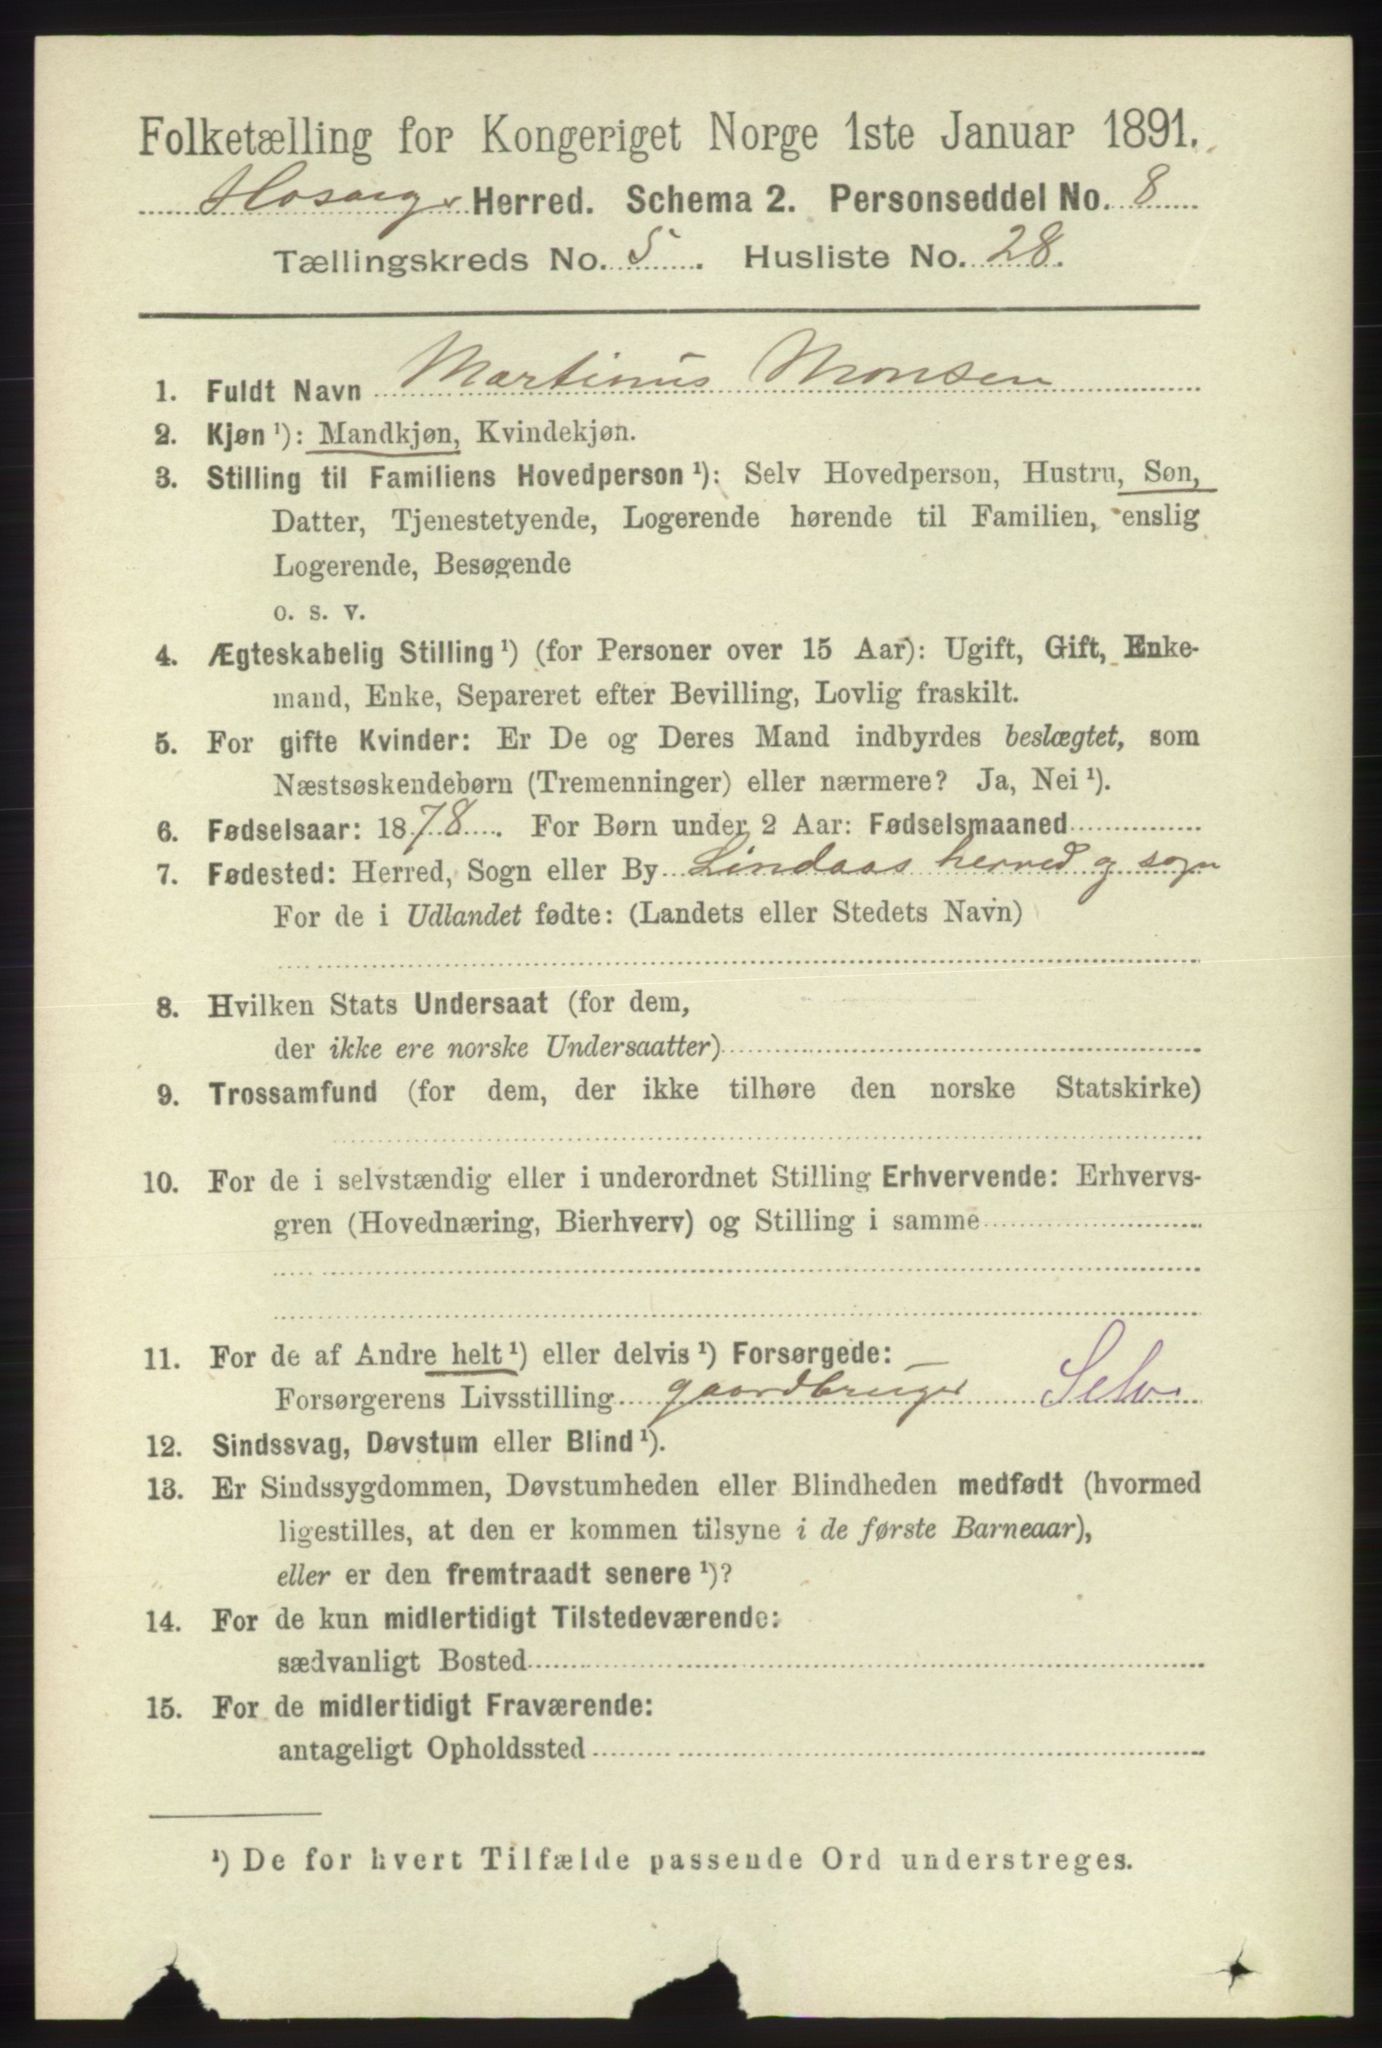 Folketælling for Kongeriget Norge 1ste Januar 1891.
Hosangr Herred. Schema 2. Personseddel No. 8
Tællingskreds No. 5. Husliste No. 28.
1. Fuldt Navn Martinus Monsen
2. Kjøn ¹): Mandkjøn, Kvindekjøn.
3. Stilling til Familiens Hovedperson ¹): Selv Hovedperson, Hustru, Søn,
Datter, Tjenestetyende, Logerende hørende til Familien, enslig
Logerende, Besøgende
o. s. v.
4. Ægteskabelig Stilling ¹) (for Personer over 15 Aar): Ugift, Gift, Enke-
mand, Enke, Separeret efter Bevilling, Lovlig fraskilt.
5. For gifte Kvinder: Er De og Deres Mand indbyrdes beslægtet, som
Næstsøskendebørn (Tremenninger) eller nærmere? Ja, Nei ¹).
6. Fødselsaar: 1878. For Børn under 2 Aar: Fødselsmaaned
7. Fødested: Herred, Sogn eller By Lindaas herred og sogn
For de i Udlandet fødte: (Landets eller Stedets Navn)
8. Hvilken Stats Undersaat (for dem,
der ikke ere norske Undersaatter)
9. Trossamfund (for dem, der ikke tilhøre den norske Statskirke)
10. For de i selvstændig eller i underordnet Stilling Erhvervende: Erhvervs-
gren (Hovednæring, Bierhverv) og Stilling i samme
11. For de af Andre helt ¹) eller delvis ¹) Forsørgede:
Forsørgerens Livsstilling gaardbruger Selv
12. Sindssvag, Døvstum eller Blind ¹).
13. Er Sindssygdommen, Døvstumheden eller Blindheden medfødt (hvormed
ligestilles, at den er kommen tilsyne i de første Barneaar),
eller er den fremtraadt senere ¹)?
14. For de kun midlertidigt Tilstedeværende:
sædvanligt Bosted
15. For de midlertidigt Fraværende:
antageligt Opholdssted
¹) De for hvert Tilfælde passende Ord understreges.